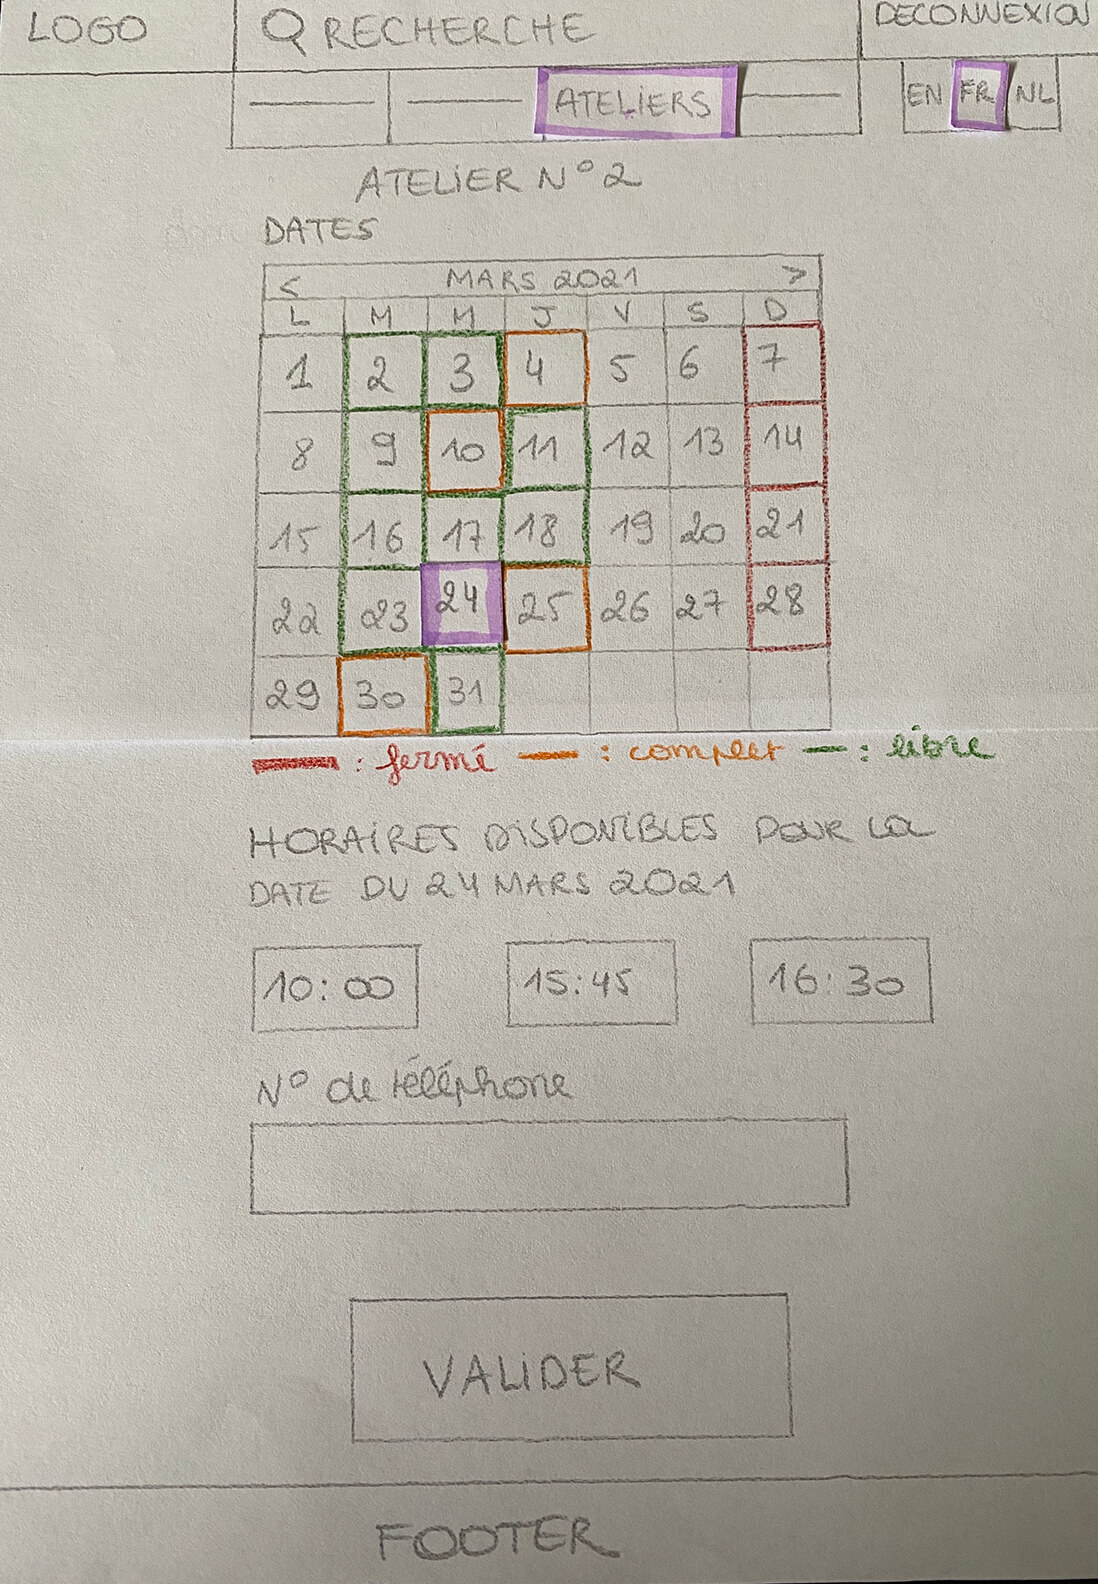 LOGO
RECHERCHE
DECONNEXION
ATELIERS
EN FR NL
ATELIER N° 2
DATES
< MARS 2021 >
L M M J V S D
1 2 3 4 5 6 7
8 9 10 11 12 13 14
15 16 17 18 19 20 21
22 23 24 25 26 27 28
29 30 31
: fermé : complet : libre
HORAIRES DISPONIBLES POUR La
DATE DU 24 MARS 2021
10:00 15:45 16:30
N° de téléphone
VALIDER
FOOTER